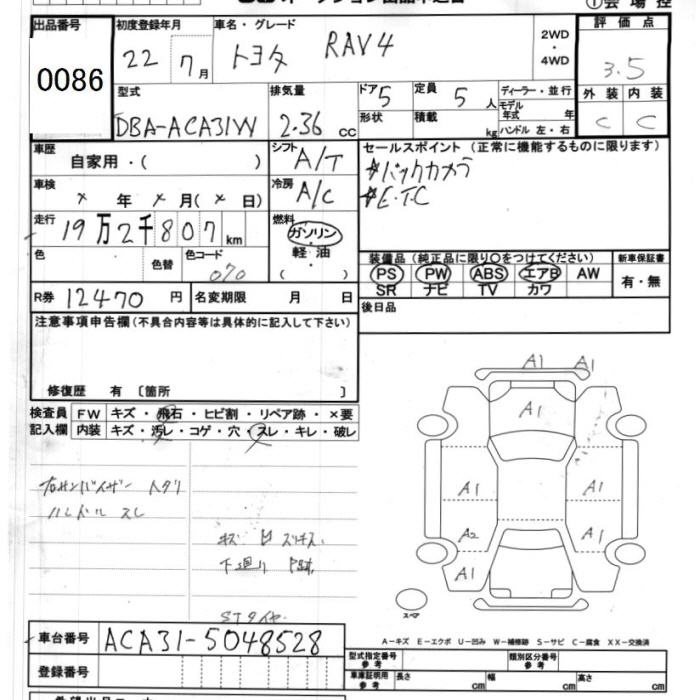 出品番号 初度登録年月 車名・グレード ①会場控
0086 22 7月 トヨタ RAV4 2WD・4WD 評価点 3.5
型式 排気量 ドア 5 定員 5人 ディーラー・並行 外装 内装
DBA-ACA31W 2.36 cc 形状 積載 kg モデル年式 年 ハンドル 左・右 C C
車歴 自家用・( ) シフト A/T セールスポイント(正常に機能するものに限ります)
車検 ×年×月(×日) 冷房 A/C #バックカメラ
#E.T.C
走行 19万2千807km 燃料 ガソリン・軽油( )
色 色替 色コード 070 装備品(純正品に限り○をつけてください) 新車保証書
PS PW ABS エアB AW 有・無
SR ナビ TV カワ
R券 12470円 名変期限 月 日 後日品
注意事項申告欄(不具合内容等は具体的に記入して下さい)
修復歴 有〔箇所 〕
検査員 FW キズ・飛石・ヒビ割・リペア跡・×要
記入欄 内装 キズ・汚レ・コゲ・穴・スレ・キレ・破レ
A1 A1
A1
A1 A1
A2 A1
A1
ハンドル スレ
キズ
下廻り
STタイヤ
スペア
A-キズ E-エクボ U-凹み W-補修跡 S-サビ C-腐食 XX-交換済
車台番号 ACA31-5048528
型式指定番号 参考 類別区分番号 参考
登録番号 車庫証明用 参考 長さ cm 幅 cm 高さ cm